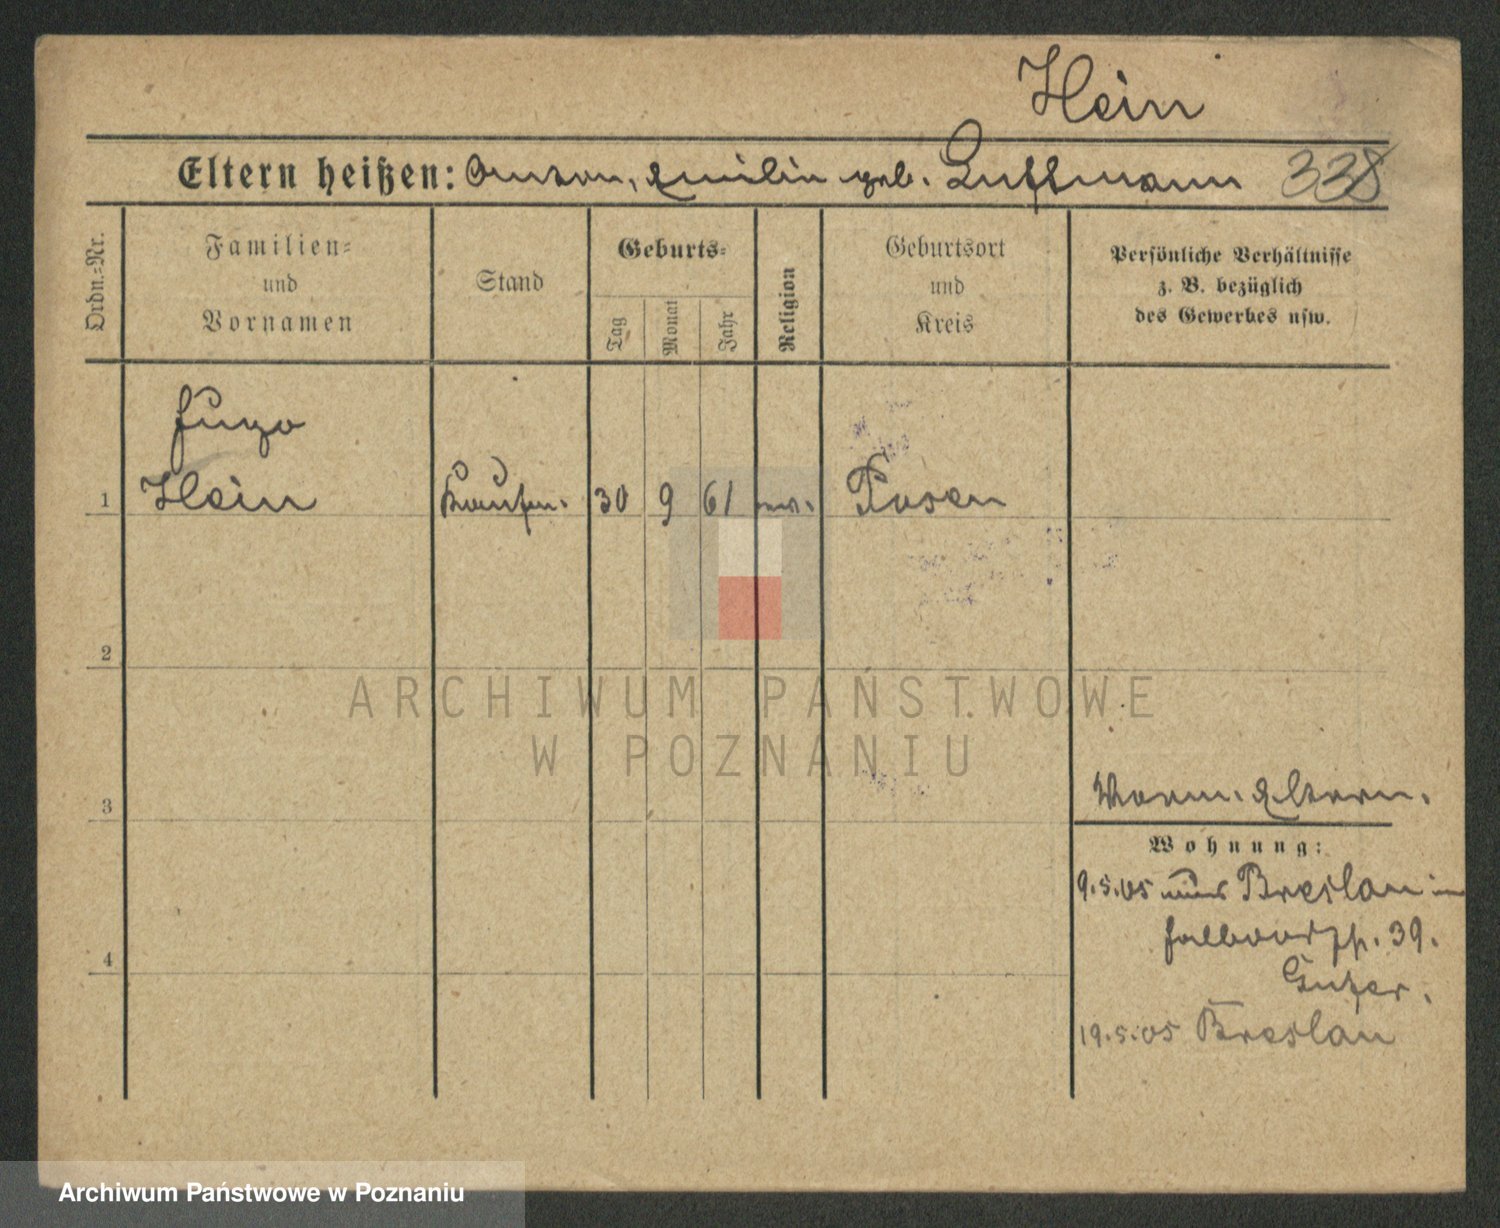 Hein
Eltern heißen: Anton, Emilie geb. Luftmann 338
Ordn.=Nr.
Familien=
und
Vornamen
Stand
Geburts=
Tag
Monat
Jahr
Religion
Geburtsort
und
Kreis
Persönliche Verhältnisse
z. B. bezüglich
des Gewerbes usw.
Hugo
1 Hein Kaufm. 30 9 61 Posen
2
ARCHIWUM PAŃSTWOWE
W POZNANIU
3
Eltern.
Wohnung:
9.5.05 aus Breslau in
39.
4
19.5.05 Breslau
Archiwum Państwowe w Poznaniu